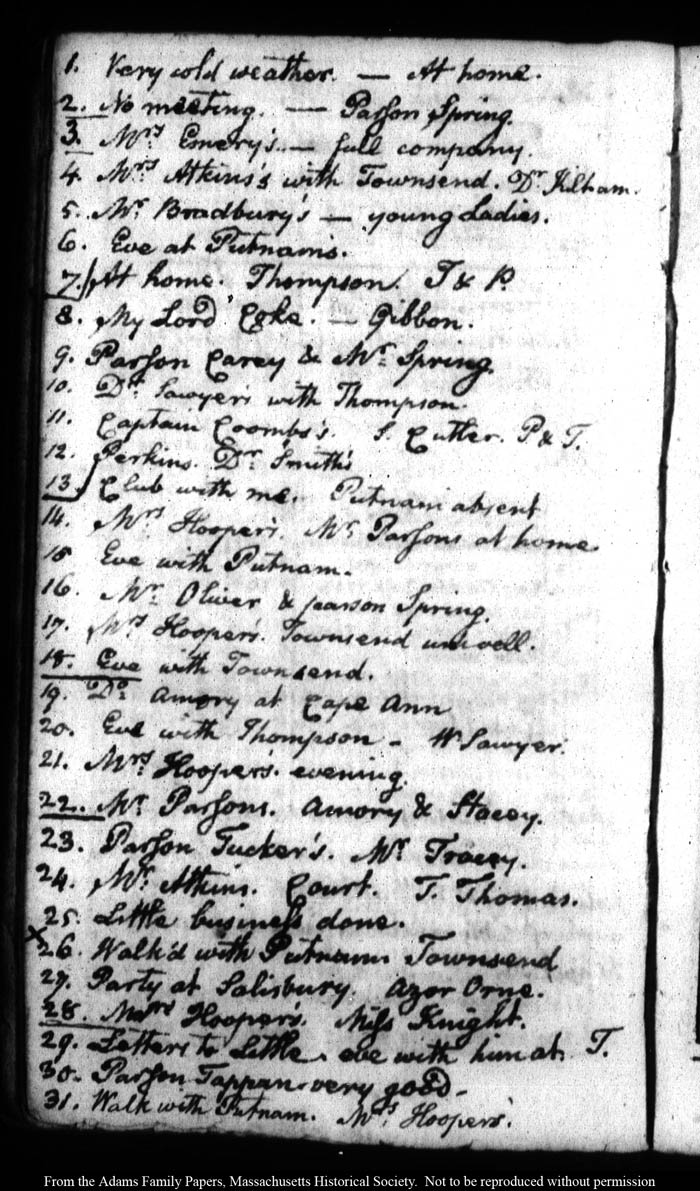 1. Very cold weather. — At home.
2. No meeting. — Parson Spring.
3. Mrs Emery's. — full company.
4. Mrs Atkins's with Townsend. Dr Kilham.
5. Mr Bradbury's — young Ladies.
6. Eve at Putnam's.
7. At home. Thompson. T & P.
8. My Lord Coke. — Gibbon.
9. Parson Carey & Mr Spring.
10. Dr Sawyer's with Thompson.
11. Captain Coombs's. S. Cutler. P & T.
12. Perkins. Dr Smith's
13. Club with me. Putnam absent
14. Mrs Hooper's. Mr Parsons at home
15 Eve with Putnam.
16. Mr Oliver & parson Spring.
17. Mrs Hooper's. Townsend unwell.
18. Eve with Townsend.
19. Do Amory at Cape Ann
20. Eve with Thompson - W Sawyer.
21. Mrs Hooper's. evening.
22. Mr Parsons. Amory & Stacey.
23. Parson Tucker's. Mr Tracey.
24. Mr Atkins. Court. T. Thomas.
25. Little business done.
x 26. Walk'd with Putnam Townsend
27. Party at Salisbury. Azor Orne.
28. Mrs Hooper's. Miss Knight.
29. Letters to Little. eve with him at T.
30. Parson Tappan. very good.
31. Walk with Putnam. Mrs Hoopers.
From the Adams Family Papers, Massachusetts Historical Society. Not to be reproduced without permission